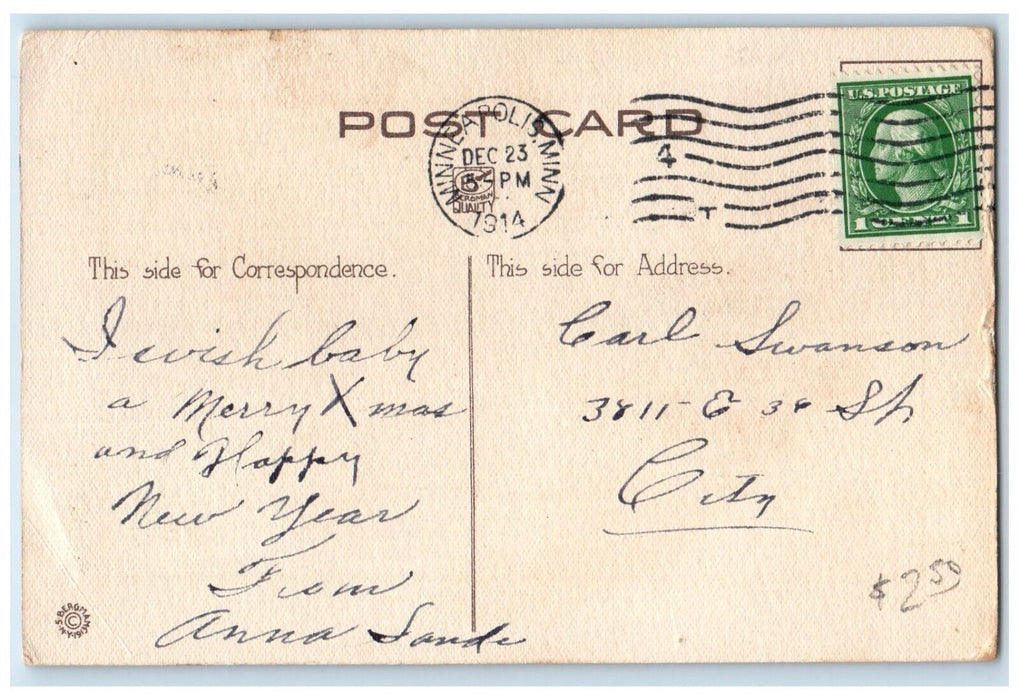 POST CARD
MINNEAPOLIS, MINN
DEC 23
PM
1914
BERGMAN
QUALITY
4
T
U.S. POSTAGE
1 1
This side for Correspondence.
I wish baby
a Merry Xmas
and Happy
New Year
From
Anna
This side for Address.
Carl Swanson
E St
City
$2.50
S. BERGMAN
N.Y.
©